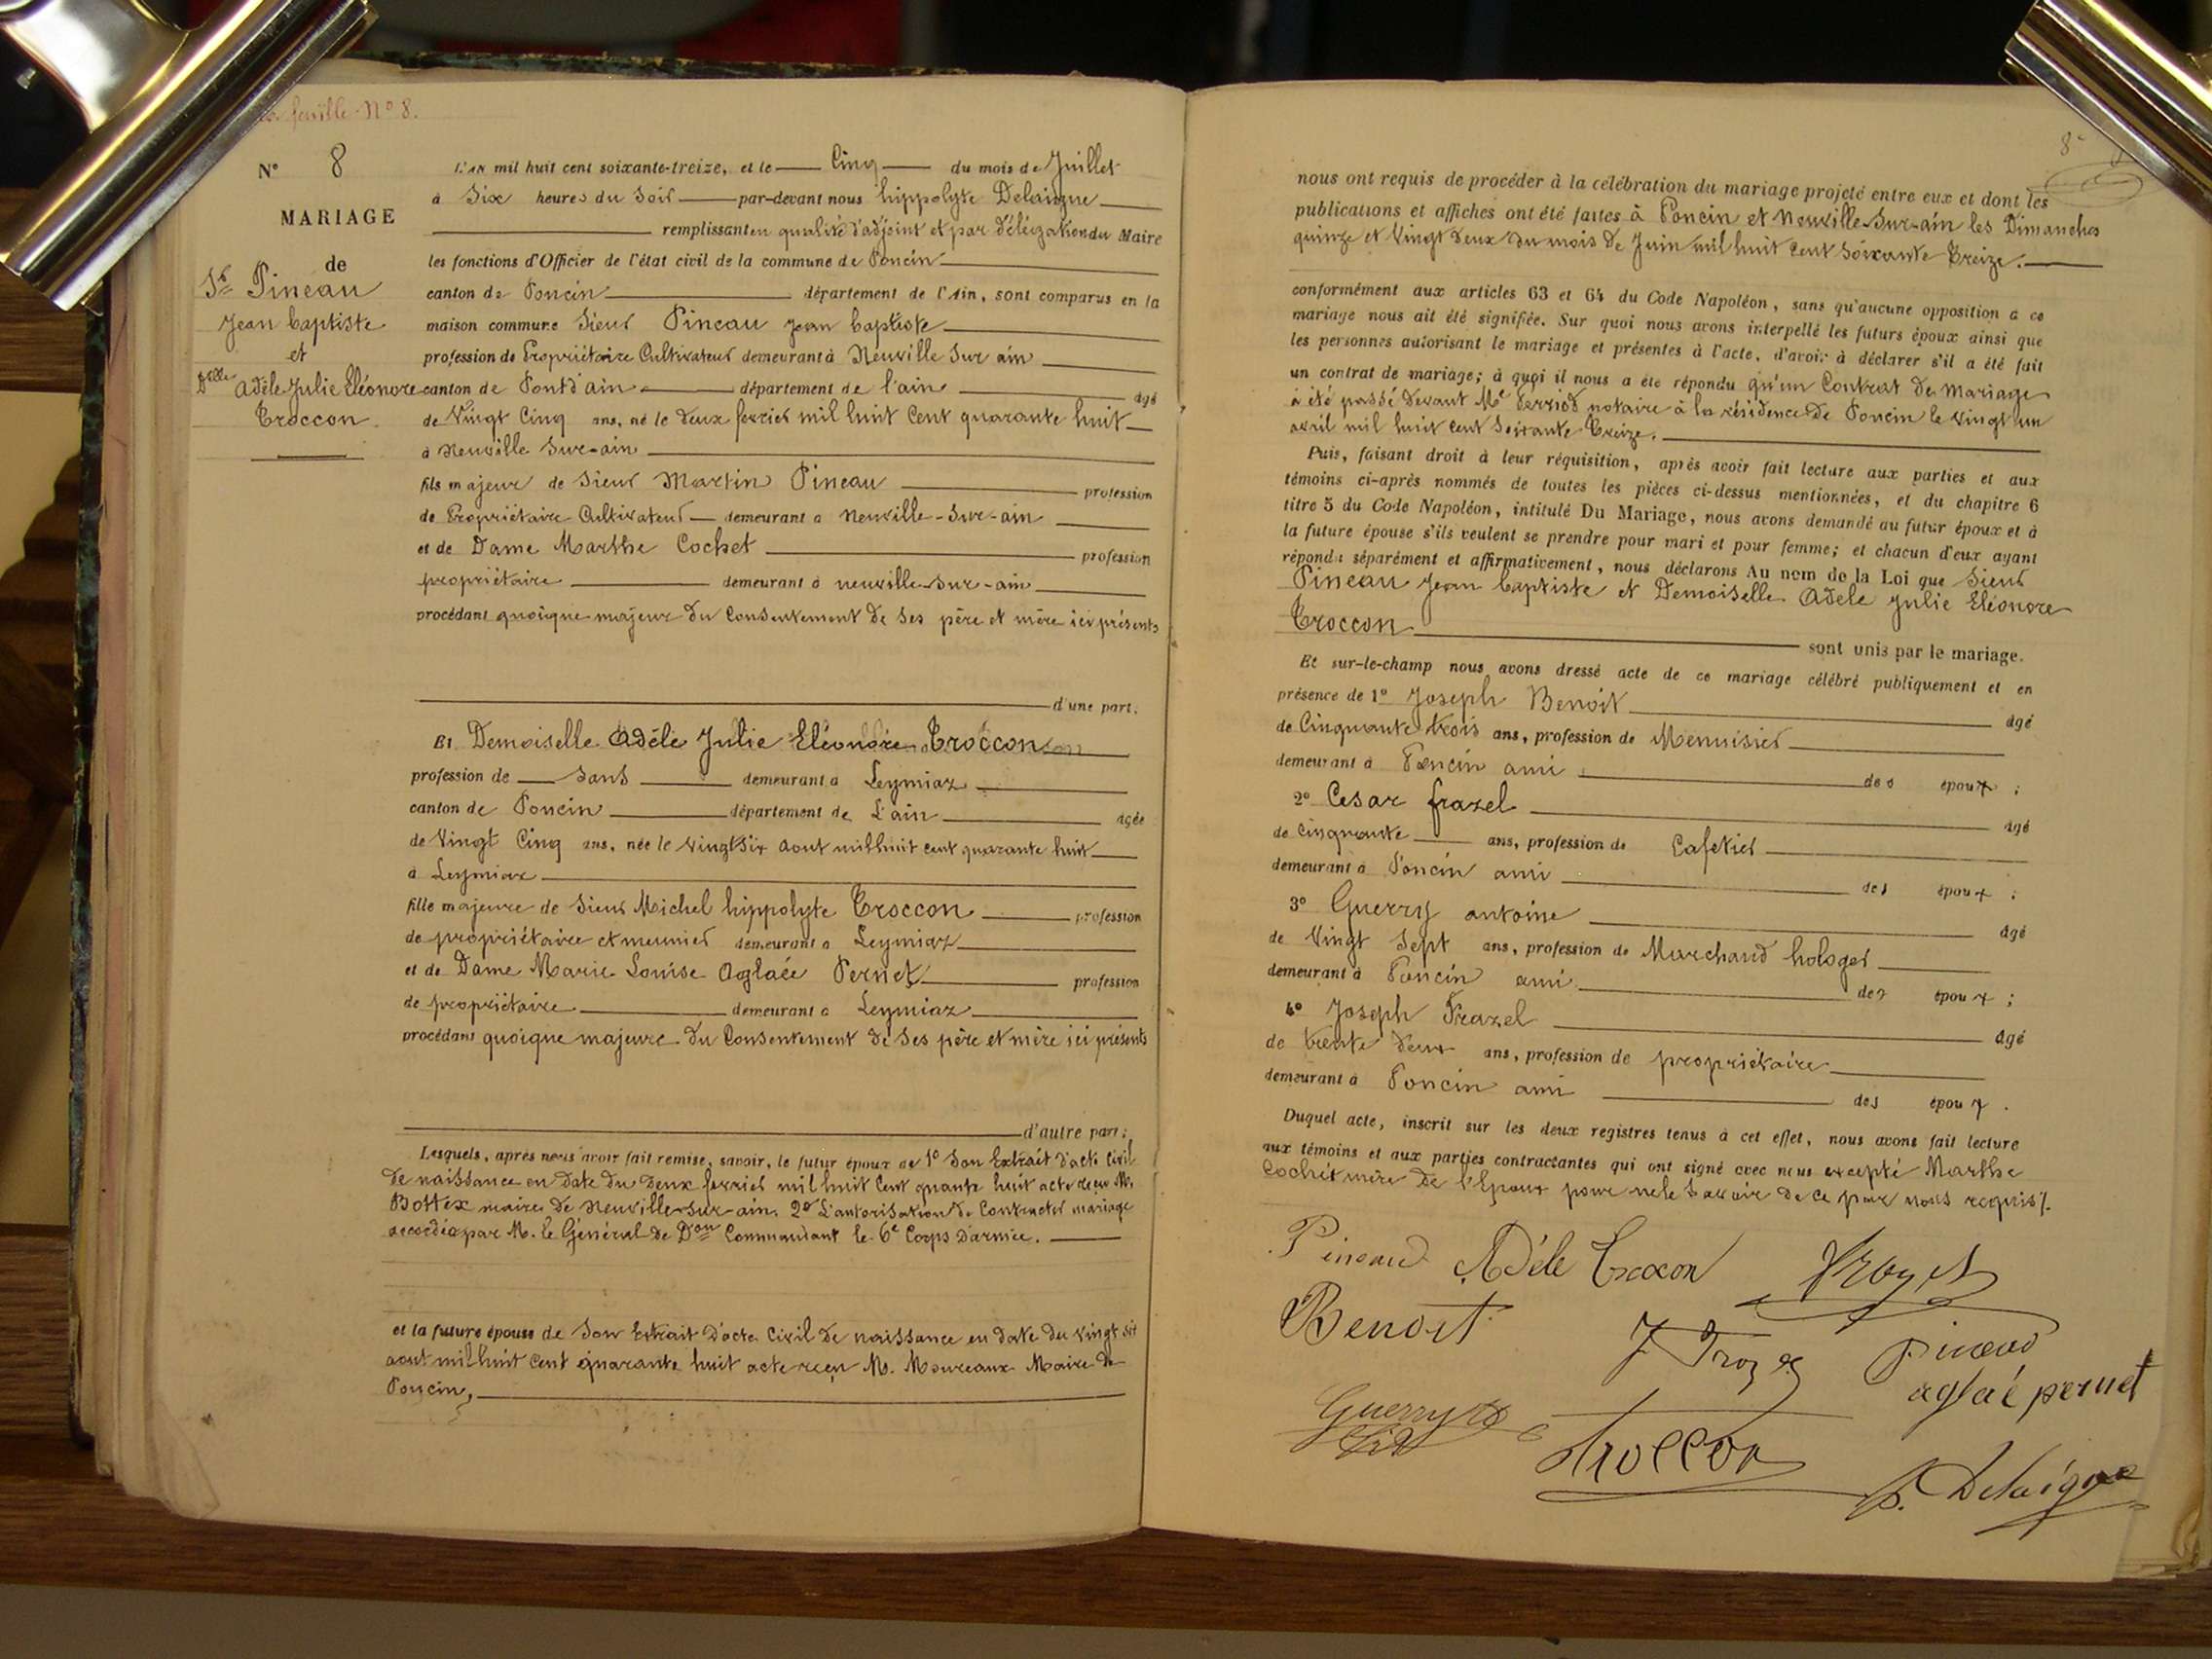 feuille N° 8.
N° 8
MARIAGE
de
Sr Pineau
Jean baptiste
et
Dlle Adèle Julie Eléonore
Troccon.
L'AN mil huit cent soixante-treize, et le Cinq du mois de Juillet
à Six heures du Soir par-devant nous hippolyte Delaigue
remplissant en qualité d'adjoint et par délégation du Maire
les fonctions d'Officier de l'état civil de la commune de Poncin
canton de Poncin département de l'Ain, sont comparus en la
maison commune Sieur Pineau Jean baptiste
profession de Propriétaire Cultivateur demeurant à Neuville Sur ain
canton de Pontd'ain département de l'ain âgé
de Vingt Cinq ans, né le deux fevrier mil huit Cent quarante huit
à Neuville Sur-ain
fils majeur de Sieur Martin Pineau profession
de Propriétaire Cultivateur demeurant à Neuville-Sur-ain
et de Dame Marthe Cochet profession
propriétaire demeurant à neuville-sur-ain
procédant quoique majeur du Consentement de Ses père et mère ici présents
d'une part.
Et Demoiselle Adèle Julie Eléonore Troccon
profession de Sans demeurant à Leymiaz
canton de Poncin département de L'ain âgée
de Vingt Cinq ans, née le Vingt Six aout mil huit cent quarante huit
à Leymiaz
fille majeure de Sieur Michel hippolyte Troccon profession
de propriétaire et meunier demeurant à Leymiaz
et de Dame Marie Louise Aglaée Pernet profession
de propriétaire demeurant à Leymiaz
procédant quoique majeure du Consentement de Ses père et mère ici présents
d'autre part;
Lesquels, après nous avoir fait remise, savoir, le futur époux de 1° Son Extrait d'acte Civil
de naissance en date du deux fevrier mil huit Cent quante huit acte reçu M.
Bottex maire de Neuville-sur-ain. 2° L'autorisation de Contracter mariage
accordée par M. le Général de Don Commandant le 6e Corps d'armée.
et la future épouse de Son Extrait d'acte Civil de naissance en date du vingt six
aout mil huit Cent quarante huit acte reçu M. Moureaux Maire de
Poncin,
8
nous ont requis de procéder à la célébration du mariage projeté entre eux et dont les
publications et affiches ont été faites à Poncin et Neuville-Sur-ain les Dimanches
quinze et Vingt deux du mois de Juin mil huit Cent Soixante Treize.
conformément aux articles 63 et 64 du Code Napoléon, sans qu'aucune opposition à ce
mariage nous ait été signifiée. Sur quoi nous avons interpellé les futurs époux ainsi que
les personnes autorisant le mariage et présentes à l'acte, d'avoir à déclarer s'il a été fait
un contrat de mariage; à quoi il nous a été répondu qu'un Contrat de Mariage
a été passé devant Me notaire à la résidence de Poncin le Vingt un
avril mil huit Cent Soixante Treize.
Puis, faisant droit à leur réquisition, après avoir fait lecture aux parties et aux
témoins ci-après nommés de toutes les pièces ci-dessus mentionnées, et du chapitre 6
titre 5 du Code Napoléon, intitulé Du Mariage, nous avons demandé au futur époux et à
la future épouse s'ils veulent se prendre pour mari et pour femme; et chacun d'eux ayant
répondu séparément et affirmativement, nous déclarons Au nom de la Loi que Sieur
Pineau Jean baptiste et Demoiselle Adèle Julie Eléonore
Troccon sont unis par le mariage.
Et sur-le-champ nous avons dressé acte de ce mariage célébré publiquement et en
présence de 1° Joseph Benoit âgé
de Cinquante trois ans, profession de Menuisier
demeurant à Poncin ami des époux ;
2° Cesar frazel âgé
de Cinquante ans, profession de Cafetier
demeurant à Poncin ami des époux ;
3° Guerry antoine âgé
de Vingt Sept ans, profession de Marchand hologer
demeurant à Poncin ami des époux ;
4° Joseph Frazel âgé
de trente deux ans, profession de propriétaire
demeurant à Poncin ami des époux.
Duquel acte, inscrit sur les deux registres tenus à cet effet, nous avons fait lecture
aux témoins et aux parties contractantes qui ont signé avec nous excepté Marthe
Cochet mère de l'Epoux pour ne le Savoir de ce par nous requis ⁒
Pineau Adèle Troccon
Benoit Pineau
aglaé pernet
Guerry
Troccon
h. Delaigue